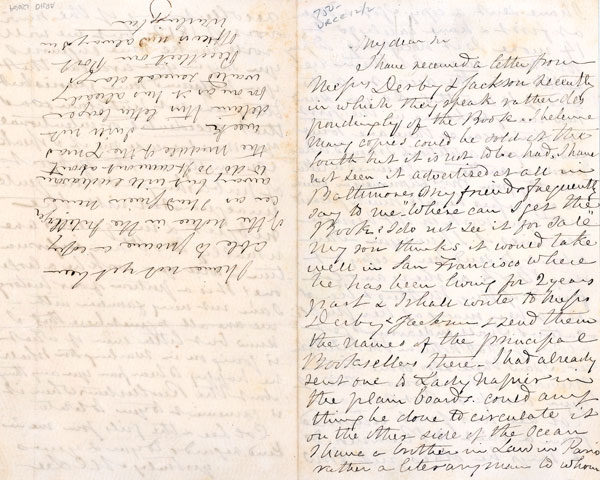 My dear Sir
I have received a letter from
Messrs Derby & Jackson recently
in which they speak rather des
pondingly of the Book. I believe
many copies could be sold at the
South but it is not to be had. I have
not seen it advertised at all in
Baltimore & my friends frequently
say to me "Where can I get the
Book, I do not see it for sale"
My son thinks it would take
well in San Francisco where
he has been living for 2 years
past & I shall write to Messrs
Derby & Jackson & send them
the names of the principal
Booksellers there. I had already
sent one to Lady Napier in
the plain boards. could any
thing be done to circulate it
on the other side of the Ocean
I have a brother in Law in Paris
rather a literary man to whom
I have not yet been
able to procure a copy
of the notice in the
as my friend
away but will endeavour
to do so. It came out about
the middle of the
week. I will not
detain this letter longer
as it has already
waited several days
Recollect our Post
Office is not always in